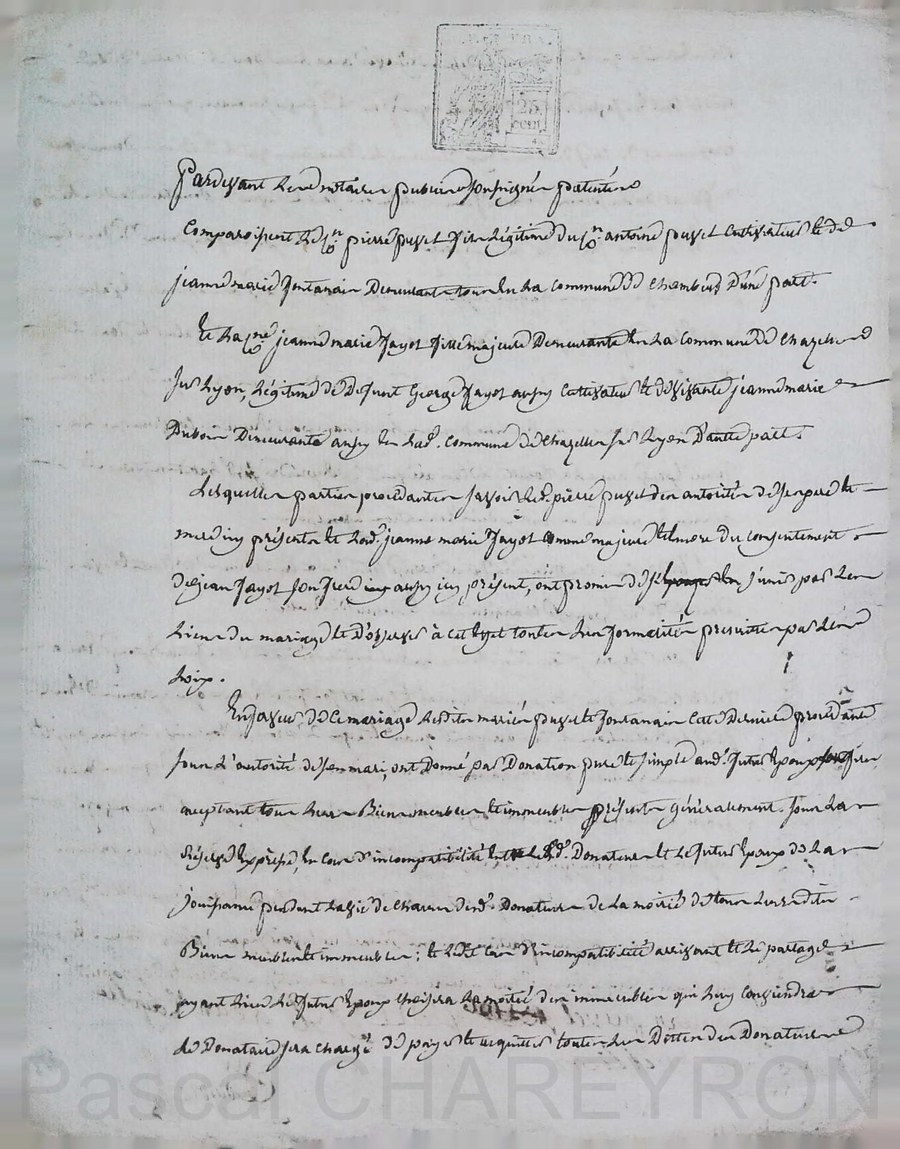 25
cent
Pardevant les notaires publics soussignés patentés
Comparoissent le cn pierre puzet fils légitime du cn antoine puzet cultivateur et de
jeanne marie fontanais Demeurants tous en la commune de Chambeus D'une part.
Et la cne jeanne marie fayot fille majeure Demeurante en la commune de Chazelles
sur Lyon, Légitime de Defunt George fayot aussy cultivateur et de vivante jeanne marie
Dubois Demeurante aussy en lad. commune de Chazelles sur Lyon D'autre part.
Lesquelles parties procedantes savoir led. pierre puzet des autorités de ses pere et
mere icy présents et lad. jeanne marie fayot comme majeure et du consentement
de jean fayot son frere aussy icy présent, ont promis de s'unir par les
Liens du mariage et d'observer à cet effet toutes les formalités prescrittes par les
Loix.
En faveur de ce mariage lesdits mariés puzet et fontanais cette Derniere procédante
sous L'autorité de son mari, ont donné par Donation pure et simple aud. futur Epoux
acceptant tous leurs Biens meubles et immeubles présents généralement. sous la
Réserve Expresse, en cas d'incompatibilité entre lesd. Donateurs et le futur Epoux de la
jouissance pendant la vie de chacun desd. Donateurs de la moitié de tous leursdits
Biens meubles et immeubles; et ledit cas d'incompatibilité arrivant et le partage
ayant lieu le futur Epoux choisira la moitié des immeubles qui luy conviendra
Le Donataire sera chargé de payer et acquitter toutes les Dettes des Donateurs
Pascal CHAREYRON